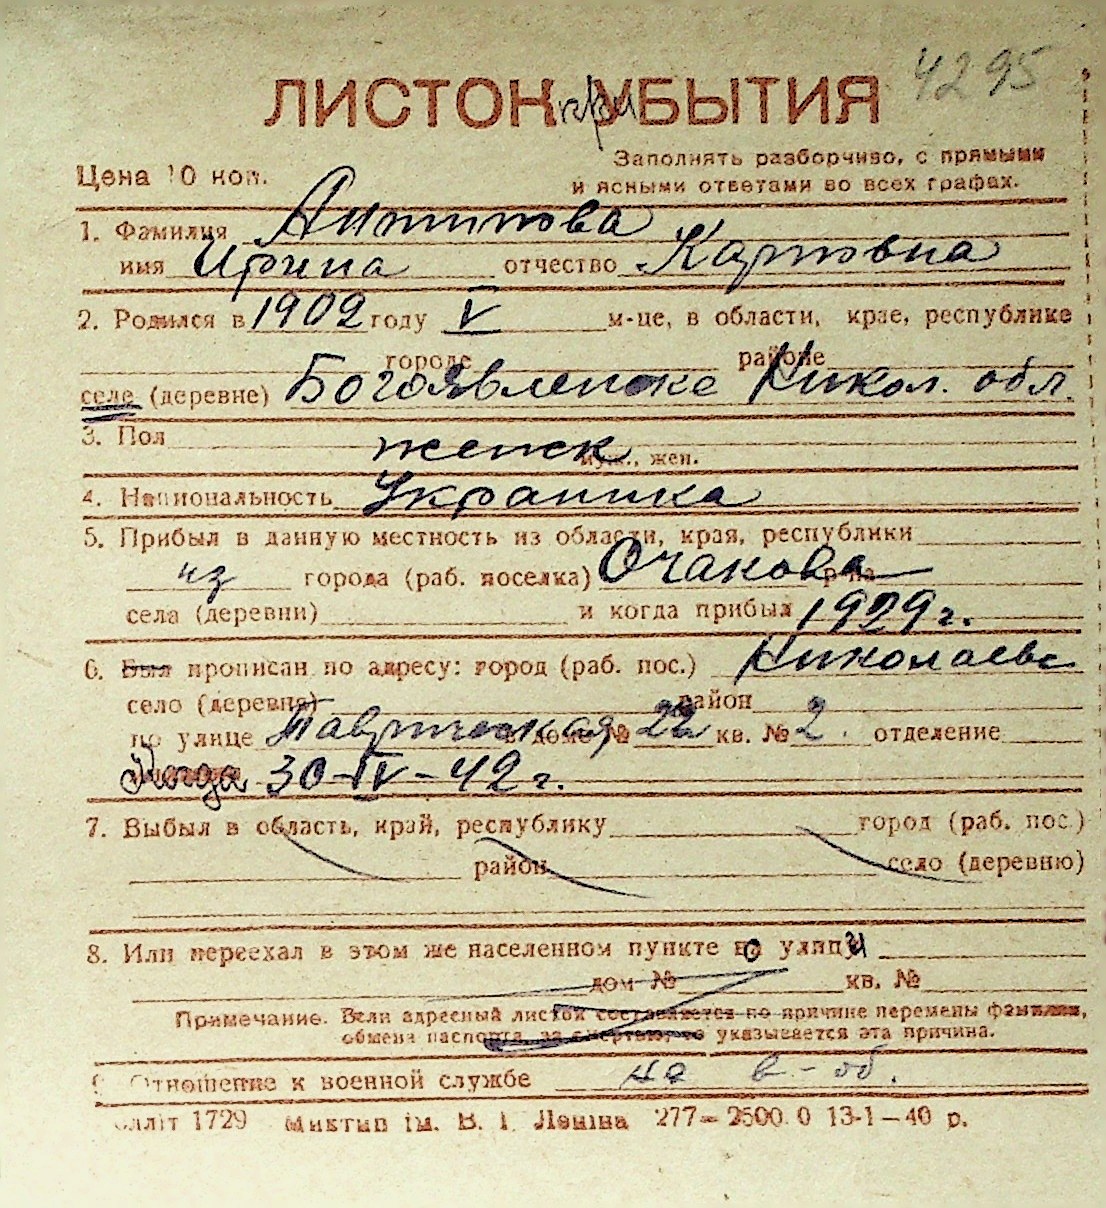 4295
ЛИСТОК при УБЫТИЯ
Заполнять разборчиво, с прямыми
Цена 10 коп.
и ясными ответами во всех графах.
1. Фамилия Антипова
имя Ирина отчество Карповна
2. Родился в 1902 году V м-це, в области, крае, республике
городе районе
селе (деревне) Богоявленске Никол. обл.
3. Пол женск
муж., жен.
4. Национальность Украинка
5. Прибыл в данную местность из области, края, республики
из города (раб. поселка) Очакова р-на
села (деревни) и когда прибыл 1929 г.
6. Был прописан по адресу: город (раб. пос.) Николаеве
село (деревня) район
по улице Таврическая в доме № 22 кв. № 2. отделение
Когда 30-IV-42 г.
7. Выбыл в область, край, республику город (раб. пос.)
район село (деревню)
8. Или переехал в этом же населенном пункте по улицы
дом № кв. №
Примечание. Если адресный листок составляется по причине перемены фамилии,
обмена паспорта, за смертью, то указывается эта причина.
9. Отношение к военной службе не в-об.
1729 Миктип ім. В. І. Леніна 277—2500.0 13-1—40 р.